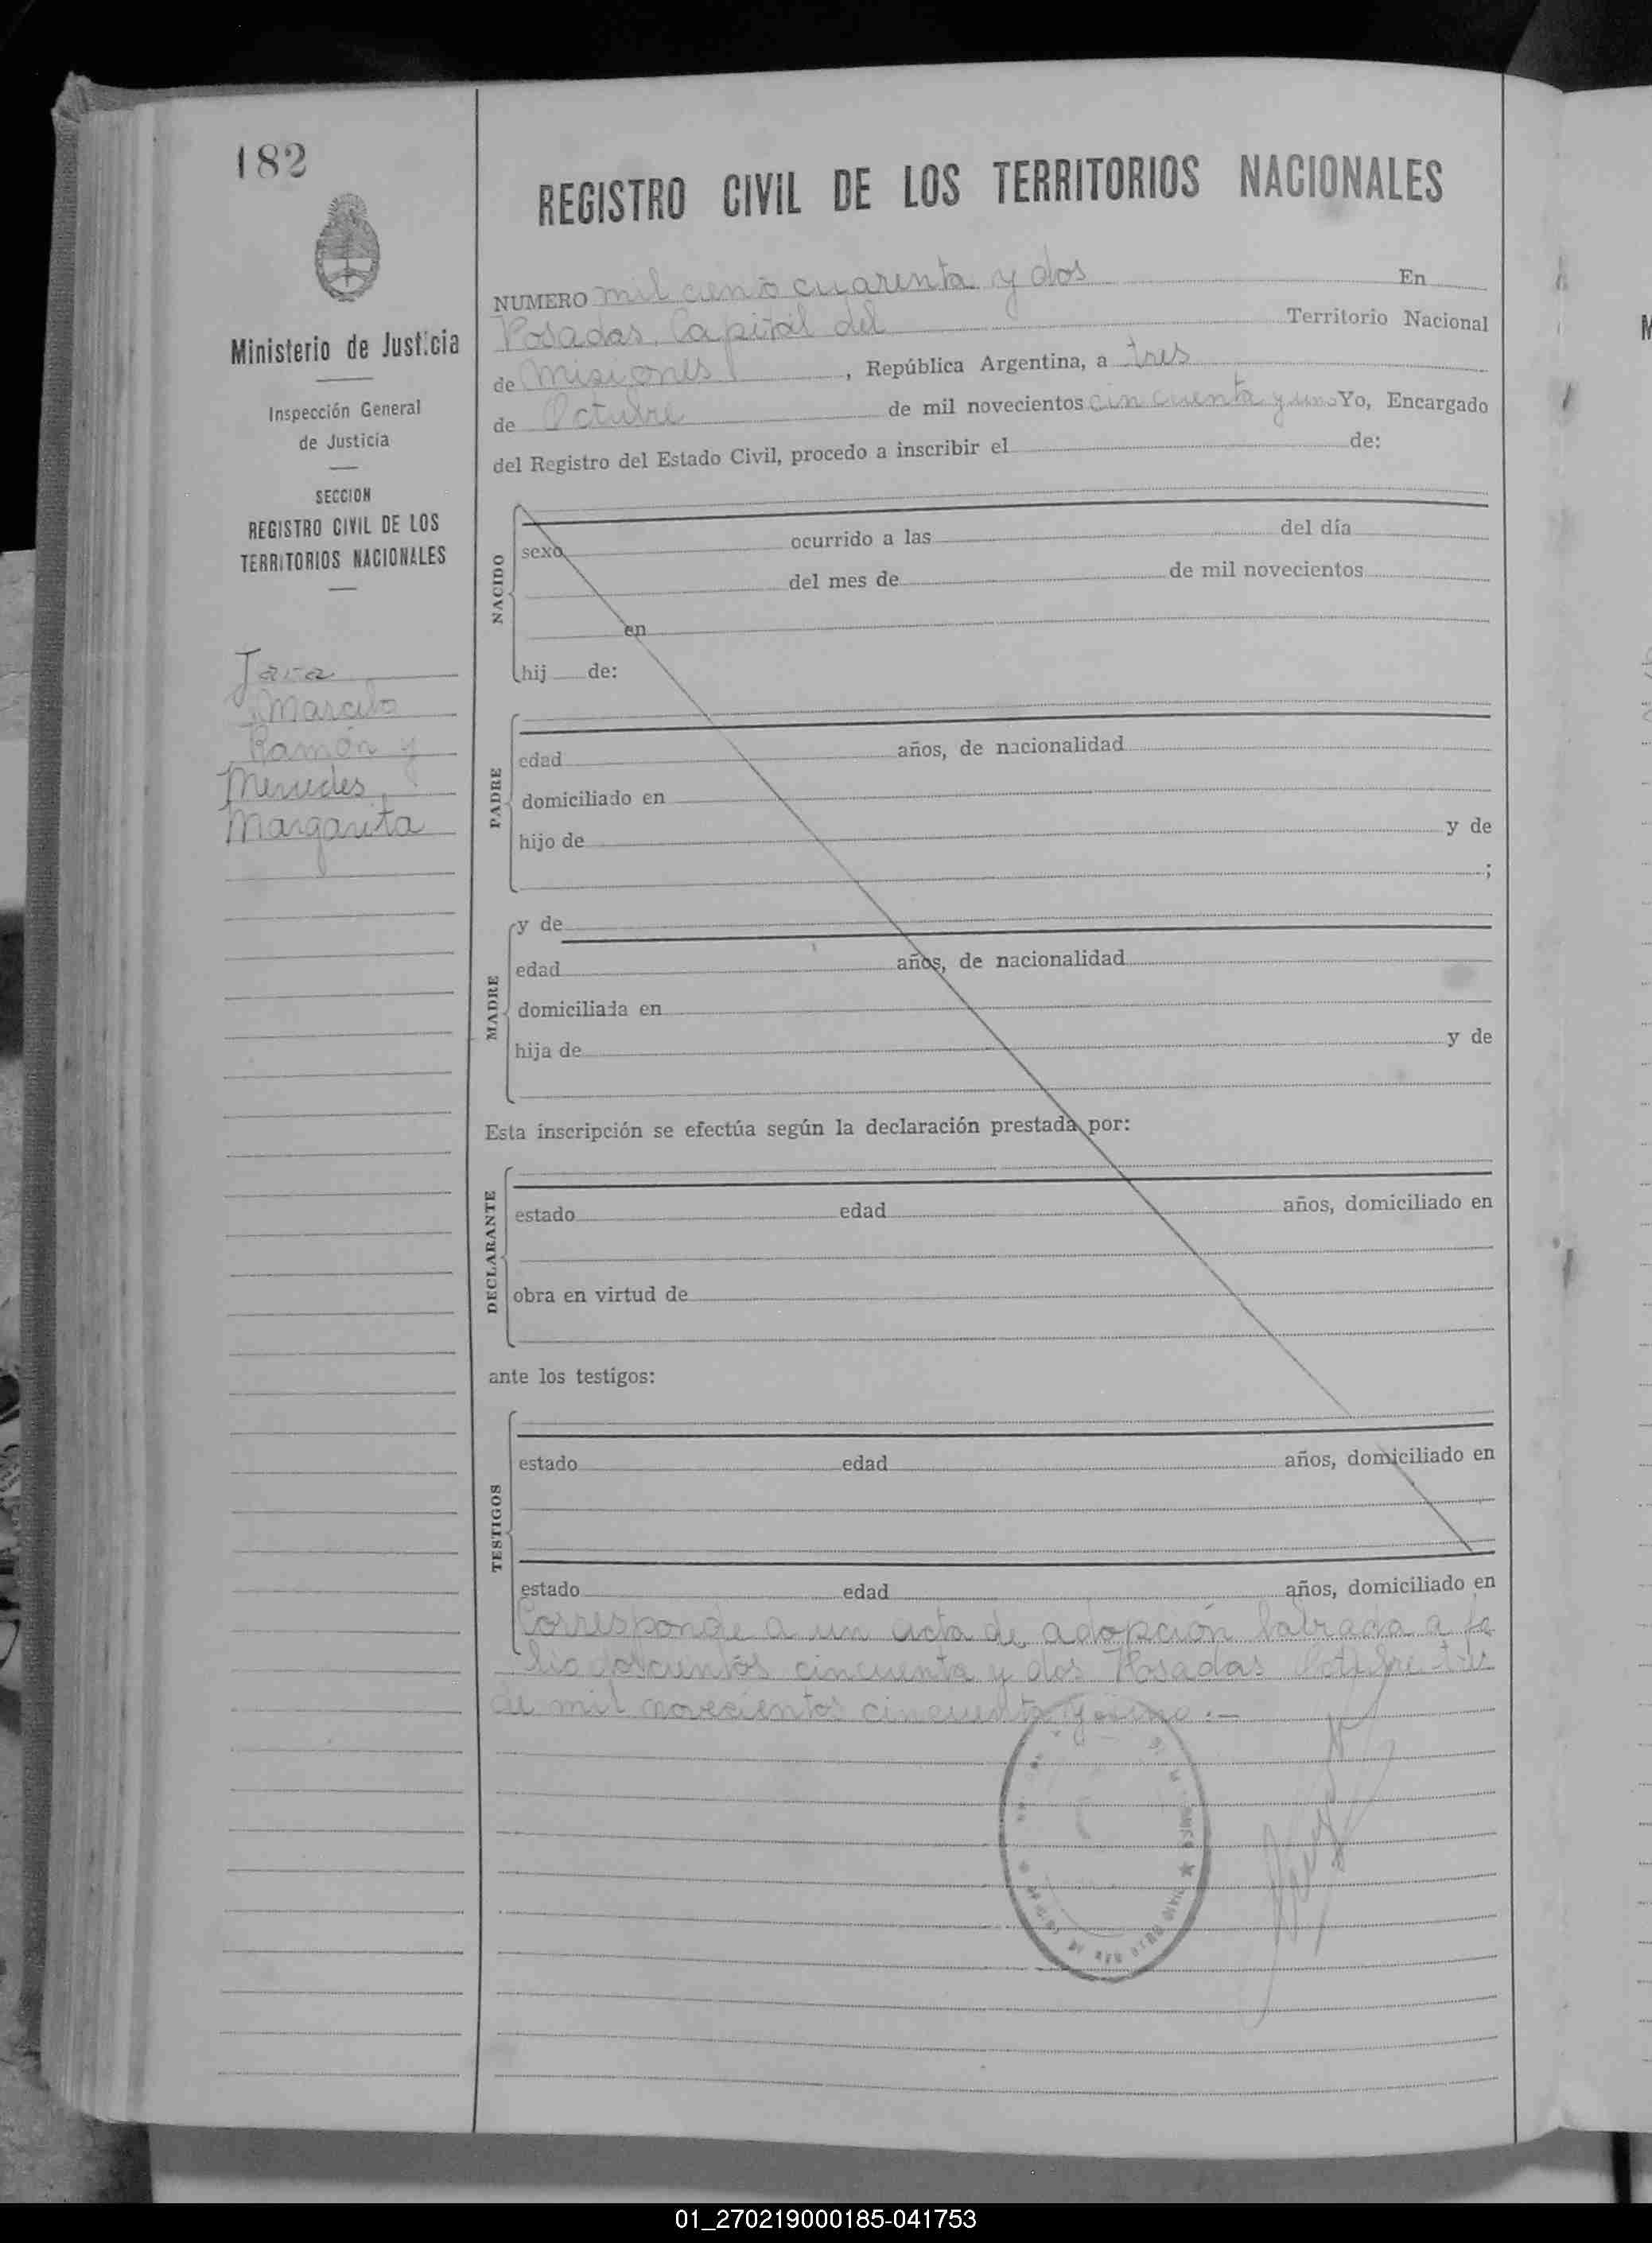 182
Ministerio de Justicia
Inspección General
de Justicia
SECCION
REGISTRO CIVIL DE LOS
TERRITORIOS NACIONALES
Jara
Marcelo
Ramón y
Mercedes
Margarita
REGISTRO CIVIL DE LOS TERRITORIOS NACIONALES
NUMERO mil ciento cuarenta y dos En
Posadas, Capital del Territorio Nacional
de Misiones, República Argentina, a tres
de Octubre de mil novecientos cincuenta y uno Yo, Encargado
del Registro del Estado Civil, procedo a inscribir el de:
NACIDO
sexo ocurrido a las del día
del mes de de mil novecientos
en
hij de:
PADRE
edad años, de nacionalidad
domiciliado en
hijo de y de
;
MADRE
y de
edad años, de nacionalidad
domiciliada en
hija de y de
Esta inscripción se efectúa según la declaración prestada por:
DECLARANTE
estado edad años, domiciliado en
obra en virtud de
ante los testigos:
TESTIGOS
estado edad años, domiciliado en
estado edad años, domiciliado en
Corresponde a un acta de adopción labrada a fo
lio doscientos cincuenta y dos Posadas Octubre tres
de mil novecientos cincuenta y uno.—
01_270219000185-041753